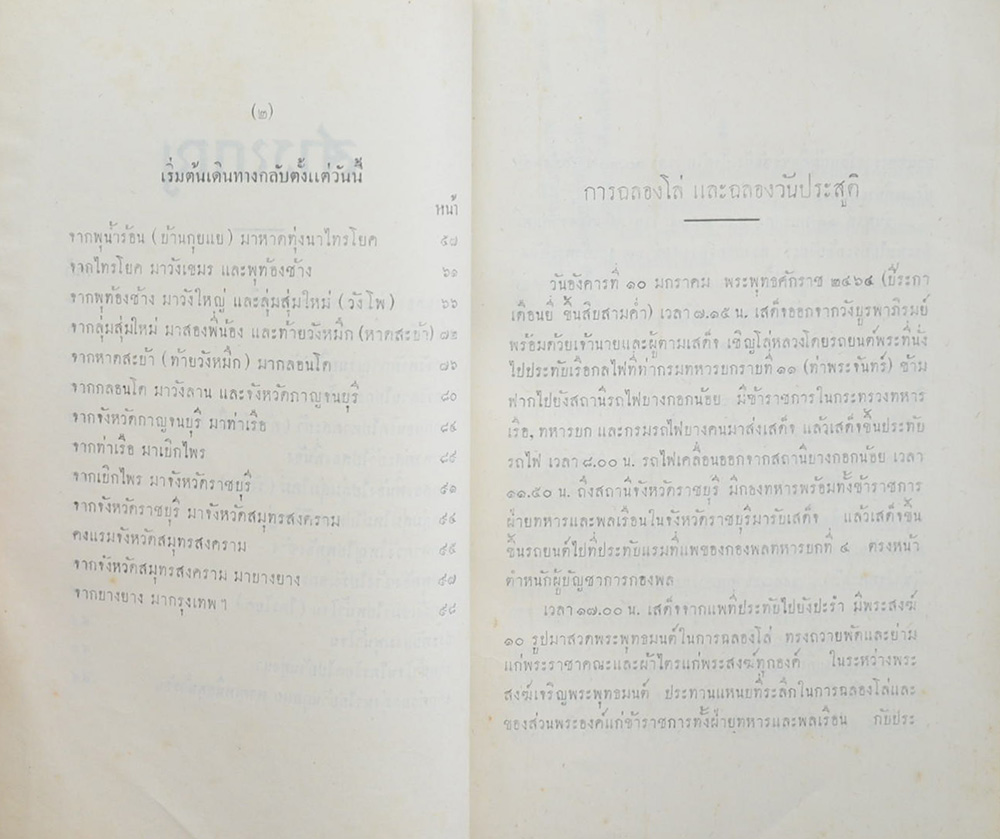 (๒)
เริ่มต้นเดินทางกลับตั้งแต่วันนี้
หน้า
จากพุน้ำร้อน (บ้านกุยแย) มาหาดทุ่งนาไทรโยค ๕๘
จากไทรโยค มาวังเขมร และพุท้องช้าง ๖๑
จากพุท้องช้าง มาวังใหญ่ และลุ่มสุ่มใหม่ (วังโพ) ๖๖
จากลุ่มสุ่มใหม่ มาสองพี่น้อง และท้ายวังหมึก (หาดสะย้า) ๗๒
จากหาดสะย้า (ท้ายวังหมึก) มากลอนโด ๗๖
จากกลอนโด มาวังลาน และจังหวัดกาญจนบุรี ๘๐
จากจังหวัดกาญจนบุรี มาท่าเรือ ๘๔
จากท่าเรือ มาเบิกไพร ๘๙
จากเบิกไพร มาจังหวัดราชบุรี ๙๑
จากจังหวัดราชบุรี มาจังหวัดสมุทรสงคราม ๙๔
คงแรมจังหวัดสมุทรสงคราม ๙๕
จากจังหวัดสมุทรสงคราม มาบางยาง ๙๗
จากบางยาง มากรุงเทพฯ ๙๘
การฉลองโล่ และฉลองวันประสูติ
วันอังคารที่ ๑๐ มกราคม พระพุทธศักราช ๒๔๖๔ (ปีระกา
เดือนยี่ ขึ้นสิบสามค่ำ) เวลา ๗.๑๕ น. เสด็จออกจากวังบูรพาภิรมย์
พร้อมด้วยเจ้านายและผู้ตามเสด็จ เชิญโล่หลวงโดยรถยนต์พระที่นั่ง
ไปประทับเรือกลไฟที่ท่ากรมทหารบกราบที่ ๑๑ (ท่าพระจันทร์) ข้าม
ฟากไปยังสถานีรถไฟบางกอกน้อย มีข้าราชการในกระทรวงทหาร
เรือ, ทหารบก และกรมรถไฟบางคนมาส่งเสด็จ แล้วเสด็จขึ้นประทับ
รถไฟ เวลา ๘.๐๐ น. รถไฟเคลื่อนออกจากสถานีบางกอกน้อย เวลา
๑๑.๕๐ น. ถึงสถานีจังหวัดราชบุรี มีกองทหารพร้อมทั้งข้าราชการ
ฝ่ายทหารและพลเรือนในจังหวัดราชบุรีมารับเสด็จ แล้วเสด็จขึ้น
ขึ้นรถยนต์ไปที่ประทับแรมที่แพของกองพลทหารบกที่ ๔ ตรงหน้า
ตำหนักผู้บัญชาการกองพล
เวลา ๑๗.๐๐ น. เสด็จจากแพที่ประทับไปยังปะรำ มีพระสงฆ์
๑๐ รูปมาสวดพระพุทธมนต์ในการฉลองโล่ ทรงถวายพัดและย่าม
แก่พระราชาคณะและผ้าไตรแก่พระสงฆ์ทุกองค์ ในระหว่างพระ
สงฆ์เจริญพระพุทธมนต์ ประทานแหนบที่ระลึกในการฉลองโล่และ
ของส่วนพระองค์แก่ข้าราชการทั้งฝ่ายทหารและพลเรือน กับประ